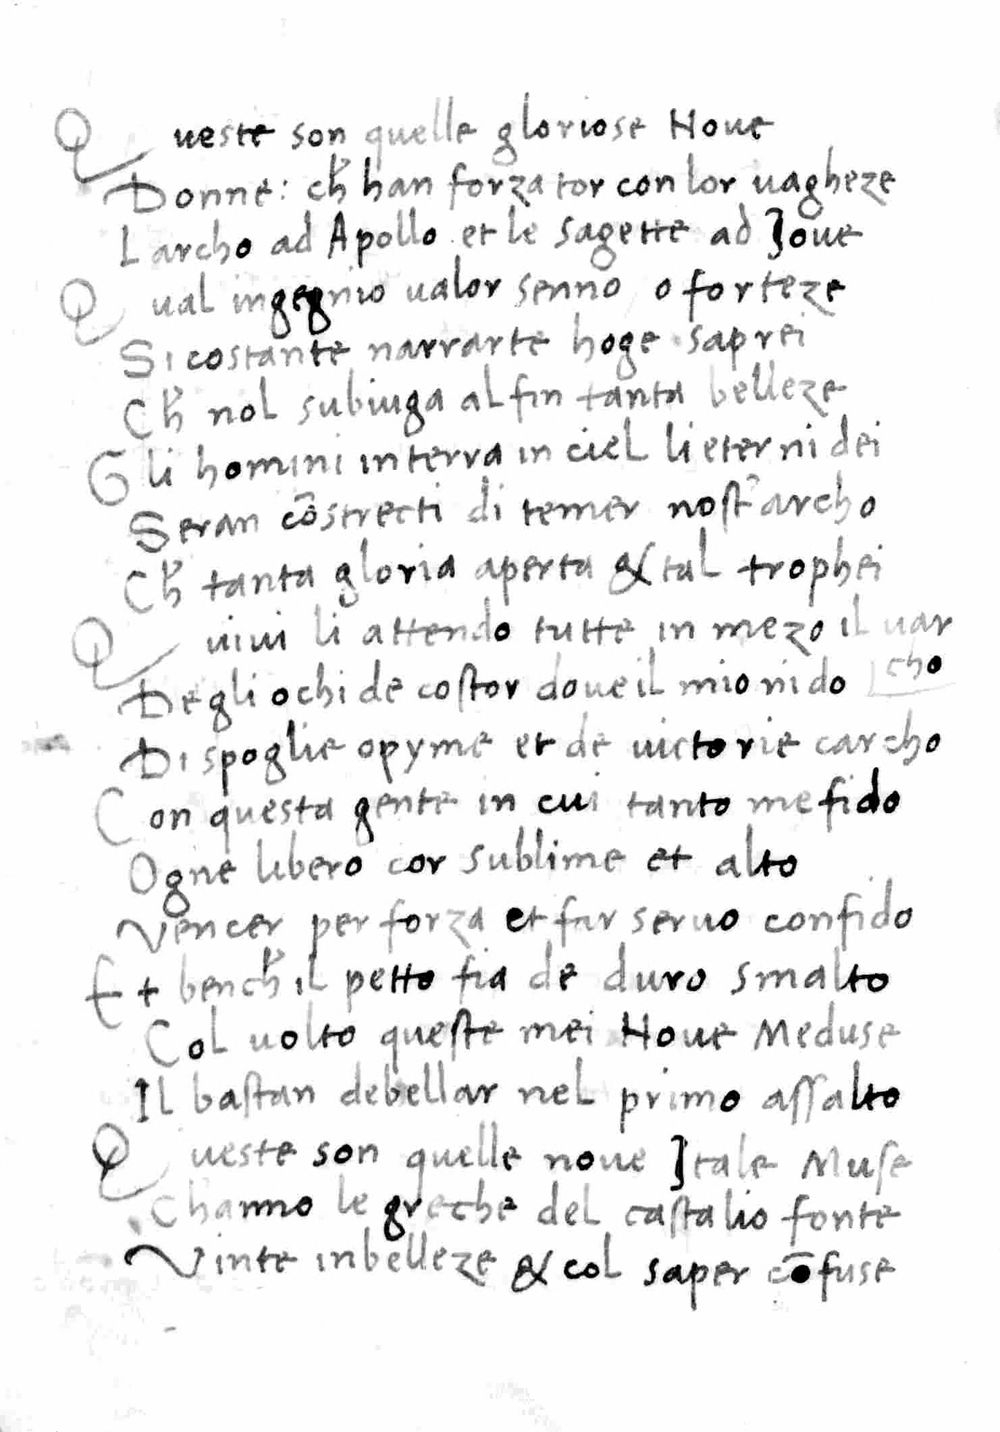 Queste son quelle gloriose Noue
Donne: ch̓ han forza tor con lor uagheze
Larcho ad Apollo et le sagette ad Joue
Qual ingegnio ualor senno o forteze
Si costante narrarte hoge saprei
Ch̓ nol subiuga al fin tanta belleze
Gli homini in terra in ciel li eterni dei
Seran cõstrecti di temer noſt̓ archo
Ch̓ tanta gloria aperta & tal trophei
Quiui li attendo tutte in mezo il uar
cho
De gli ochi de coſtor doue il mio nido
Di spoglie opyme et de uictorie carcho
Con questa gente in cui tanto me fido
Ogne libero cor sublime et alto
Vencer per forza et far seruo confido
Et bench̓ il petto fia de duro smalto
Col uolto queſte mei Noue Meduse
Il baſtan debellar nel primo aſſalto
Queste son quelle noue Jtale Muſe
Channo le greche del caſtalio fonte
Vinte in belleze & col saper cōfuse